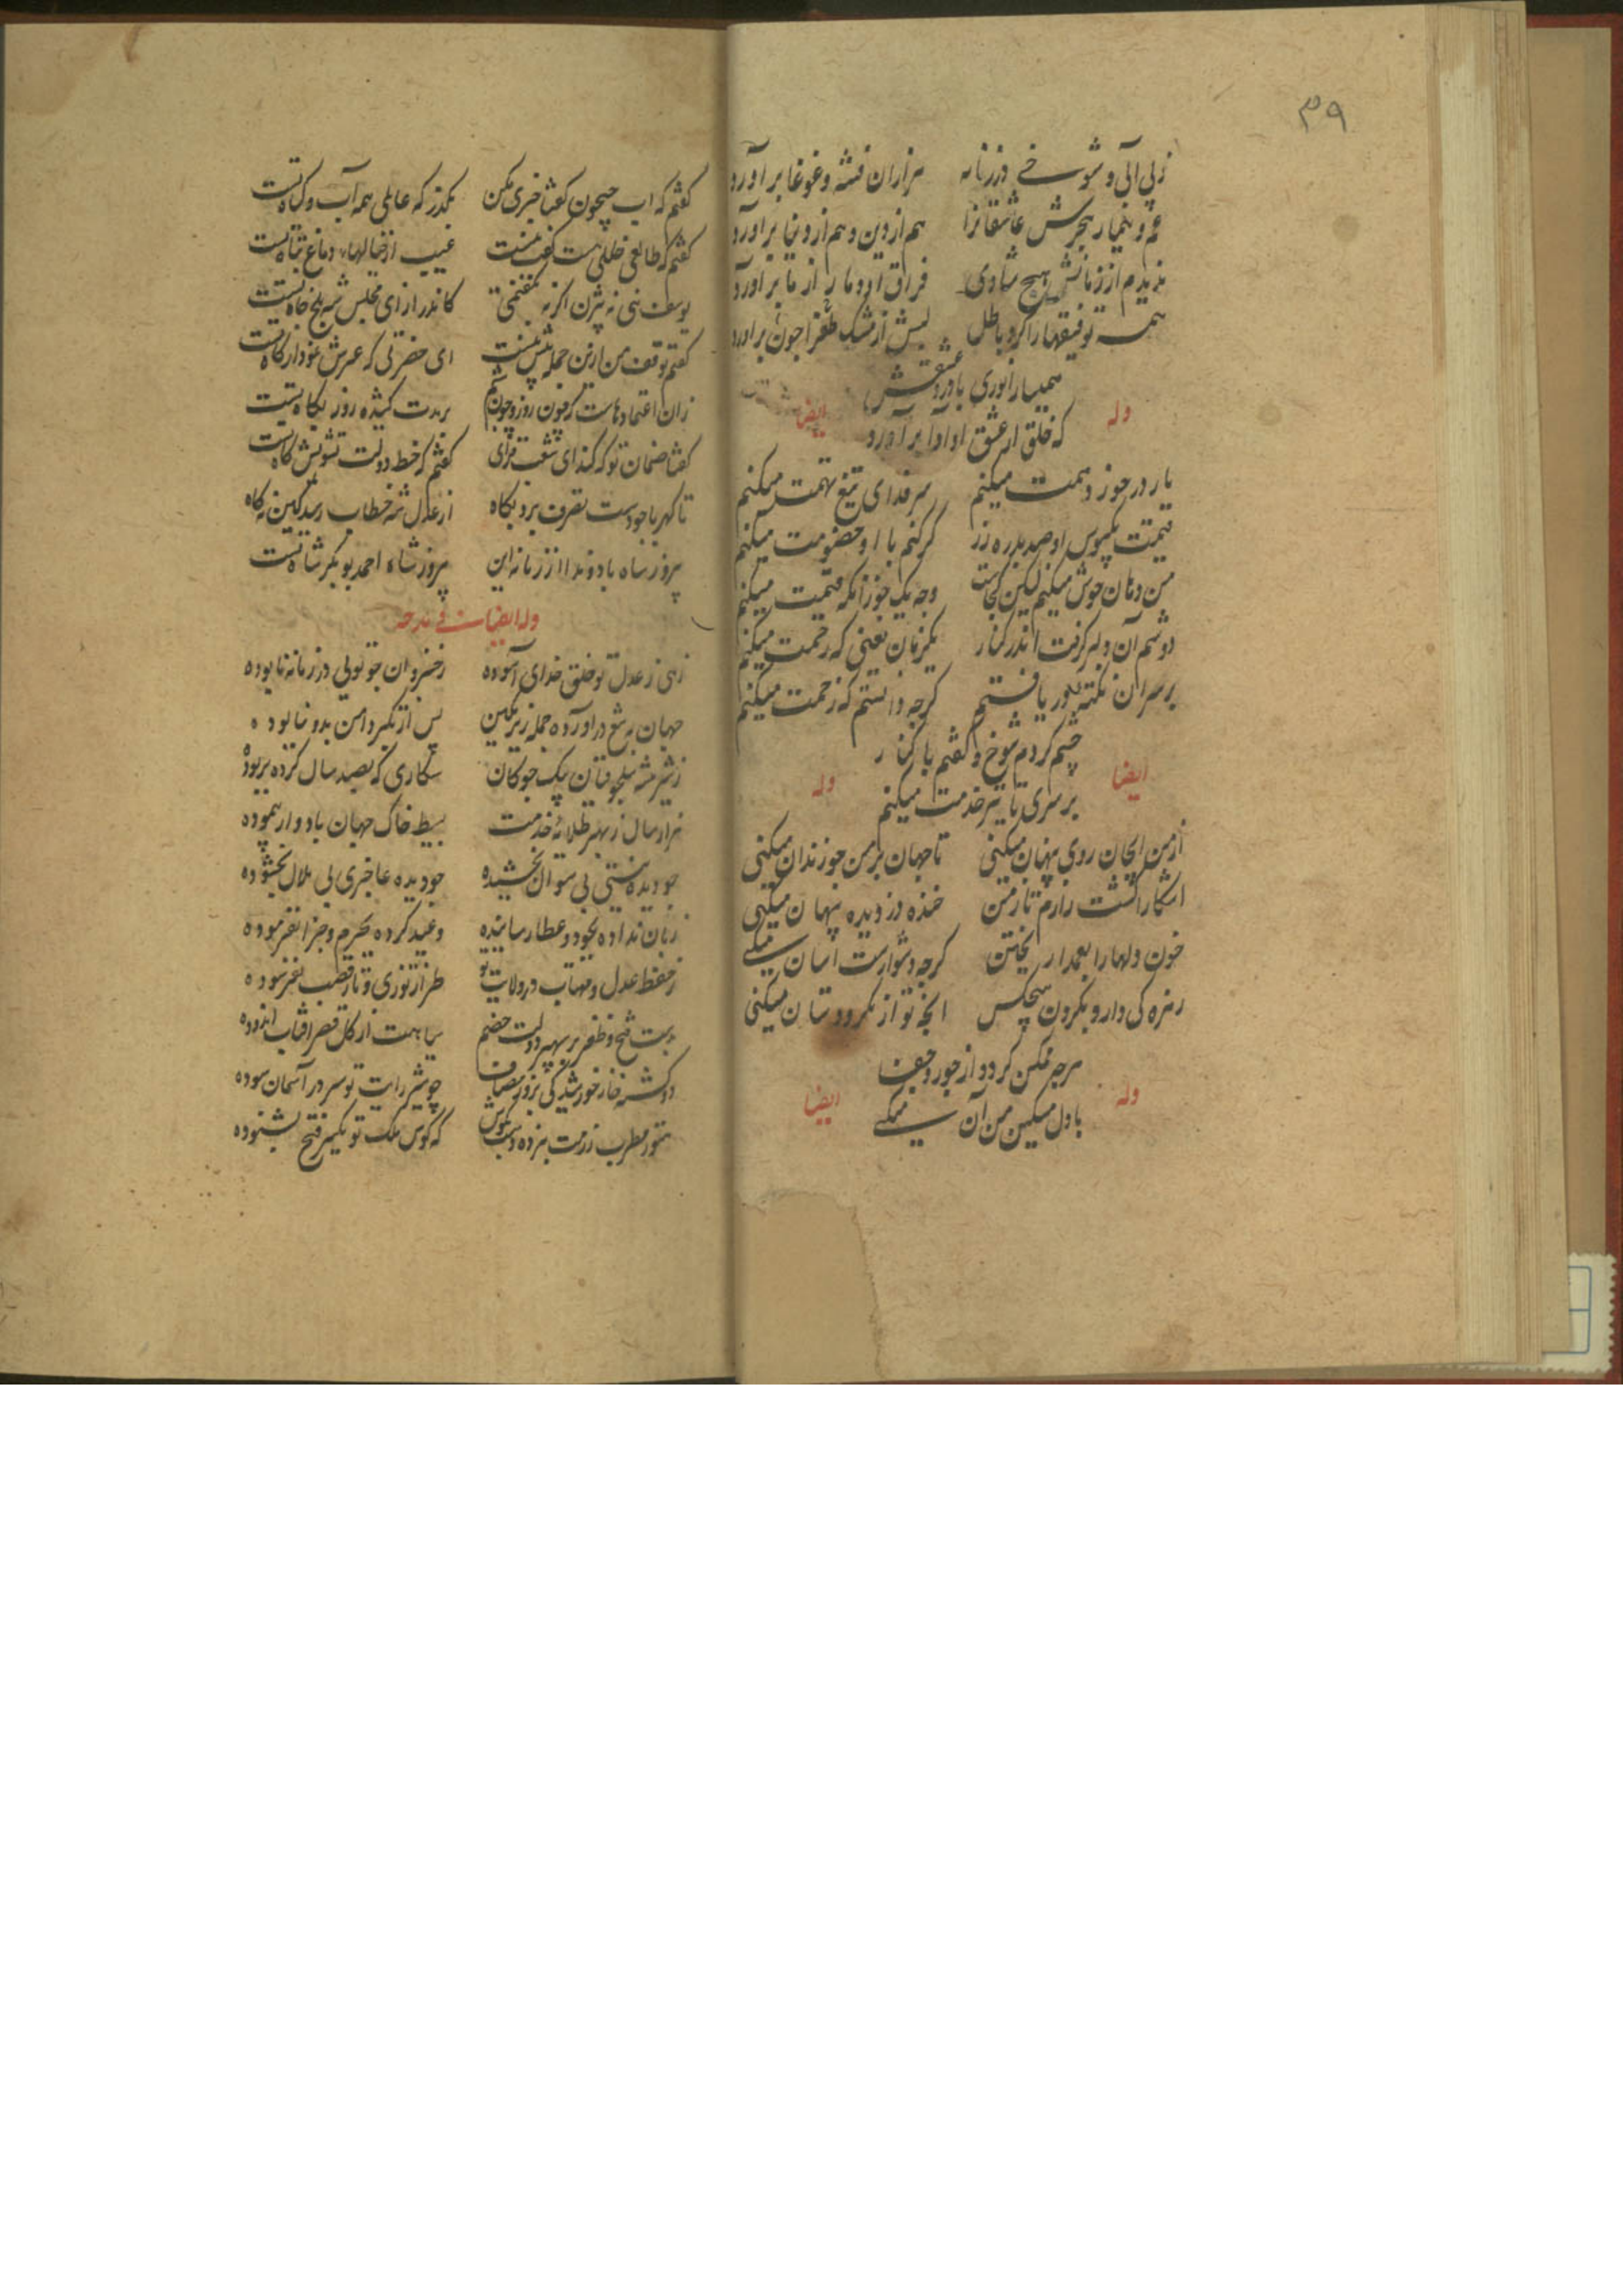 ۳۹
ز بی آبی و شوخی در زمانه هزاران فتنه و غوغا برآورد
غم و تیمار هجرش عاشقانرا هم از دین و هم از دنیا برآورد
ندیدم از زمانش هیچ شادی فراق او دمار از ما برآورد
همه توفیقها را کرد باطل لبش از مشک طغرا چون برآورد
همی انوری باورد عشقش
که خلق از عشق او آوا برآورد
وله
ایضا
بار در جور و همت میکنم سر فدای تیغ تهمت میکنم
قیمت یکبوس او صد بدره زر گر کنم با او خصومت میکنم
من دهان خوش میکنم لیکن کجاست وجه یک جو زانکه قیمت میکنم
دوشم آن دلبر گرفت اندر کنار یکزمان یعنی که رحمت میکنم
بر سر آن نکته در یافتم گرچه دانستم که زحمت میکنم
چشم کردم شوخ و گفتم با کنار
بر سری تا نیز خدمت میکنم
ایضا
وله
از من ای جان روی پنهان میکنی تا جهان بر من چو زندان میکنی
آشکارا گشت رازم تا ز من خنده دزدیده پنهان میکنی
خون دلها را بعمدا ریختن گرچه دشوارست آسان میکنی
زهره کی دارد بگردون هیچکس آنچه تو از مکر و دستان میکنی
هر چه ممکن گردد از جور و جفا
با دل مسکین من آن میکنی
وله
ایضا
گفتم که اب جیحون گفتا خبری مکن بگذر که عاملی همه آب و گیاه تست
گفتم که طالعی خللی هست گفت نیست عیب از خیالهاء دماغ تباه تست
یوسف نئی نه بیژن اگر نه بگفتمی کاندر ازای مجلس شه بلخ چاه تست
گفتم توقف من ازین جمله نیش نیست ای حضرتی که عرش نمودار گاه تست
زان اعتمادهاست که چون روز و چون شبم بر مدت کشیده روز بگاه تست
گفتا ضمان تو که کند ای شغب فزای گفتم که خط دولت تشویش کاه تست
تا کهربا چو دست تصرف برد بکاه از عدل شه خطاب رسد کین نه کاه تست
پیروز شاه باد و ندا از زمانه این پیروز شاه احمد بوبکر شاه تست
وله ایضا فی مدحه
زهی ز عدل تو خلق خدای آسوده ز خسروان چو تویی در زمانه نا بوده
جهان به تیغ درآورده جمله زیر نگین پس از تکبر دامن بدو نیالوده
ز شیر بیشه سلجوقیان بیک جولان شکاری که بصد سال کرده بربوده
هزار سال ز بهر طلایه خدمت بسیط خاک جهان باد وار پیموده
چو دیده نیستی بی سؤال بخشیده چو دیده عاجزی بی ملال بخشوده
زبان نداده بجود و عطا رسانیده وعید کرده بجرم و جزا نفرموده
ز حفظ عدل تو مهتاب در ولایت تو طراز توزی و تار قصب نفرسوده
بدست فتح و ظفر بر سپهر دولت خصم سیاستت از گل قصر آفتاب اندوده
دو کشته خار خورشید کی بروز مصاف چو شیر رایت تو سر در آسمان سوده
هنوز مطرب رزمت نزده دست بکوس که گوش ملک تو تکبیر فتح بشنوده